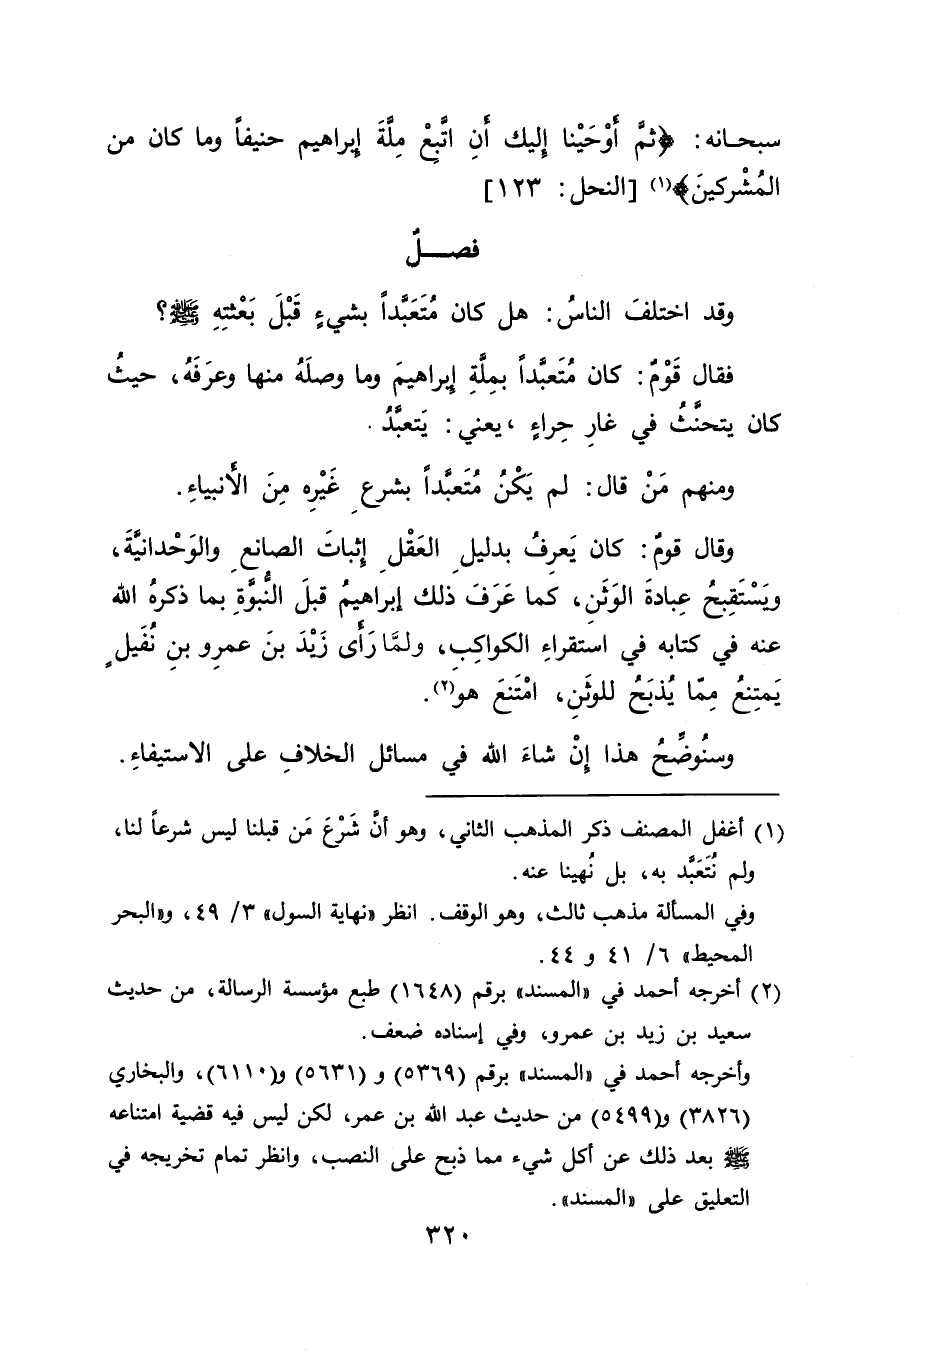 سبحانه: ﴿ثمَّ أَوْحَيْنا إليك أَنِ اتَّبِعْ مِلَّةَ إبراهيم حنيفاً وما كان من
المُشْركينَ﴾(١) [النحل: ١٢٣]
فصـلٌ
وقد اختلفَ الناسُ: هل كان مُتَعَبَّداً بشيءٍ قَبْلَ بَعْثتِهِ ﷺ؟
فقال قَوْمٌ: كان مُتَعبَّداً بمِلَّةِ إبراهيمَ وما وصلَهُ منها وعرَفَهُ، حيثُ
كان يتحنَّثُ في غارِ حِراءٍ ،يعني: يَتعبَّدُ.
ومنهم مَنْ قال: لم يَكُنْ مُتَعبَّداً بشرعِ غَيْرِه مِنَ الأنبياءِ.
وقال قومٌ: كان يَعرِفُ بدليلِ العَقْلِ إثباتَ الصانعِ والوَحْدانيَّةَ،
ويَسْتَقبِحُ عِبادةَ الوَثَنِ، كما عَرَفَ ذلك إبراهيمُ قبلَ النُّبوَّةِ بما ذكرهُ الله
عنه في كتابه في استقراءِ الكواكِبِ، ولمَّا رَأَى زَيْدَ بنَ عمرِو بنِ نُفَيلٍ
يَمتنِعُ مِمّا يُذبَحُ للوثَنِ، امْتَنعَ هو(٢).
وسنُوضِّحُ هذا إنْ شاءَ الله في مسائل الخلافِ على الاستيفاءِ.
(١) أغفل المصنف ذكر المذهب الثاني، وهو أنَّ شَرْعَ مَن قبلنا ليس شرعاً لنا،
ولم نُتَعَبَّد به، بل نُهينا عنه.
وفي المسألة مذهب ثالث، وهو الوقف. انظر «نهاية السول» ٣/ ٤٩، و«البحر
المحيط» ٦/ ٤١ و ٤٤.
(٢) أخرجه أحمد في «المسند» برقم (١٦٤٨) طبع مؤسسة الرسالة، من حديث
سعيد بن زيد بن عمرو، وفي إسناده ضعف.
وأخرجه أحمد في «المسند» برقم (٥٣٦٩) و (٥٦٣١) و(٦١١٠)، والبخاري
(٣٨٢٦) و(٥٤٩٩) من حديث عبد الله بن عمر، لكن ليس فيه قضية امتناعه
ﷺ بعد ذلك عن أكل شيء مما ذبح على النصب، وانظر تمام تخريجه في
التعليق على «المسند».
٣٢٠